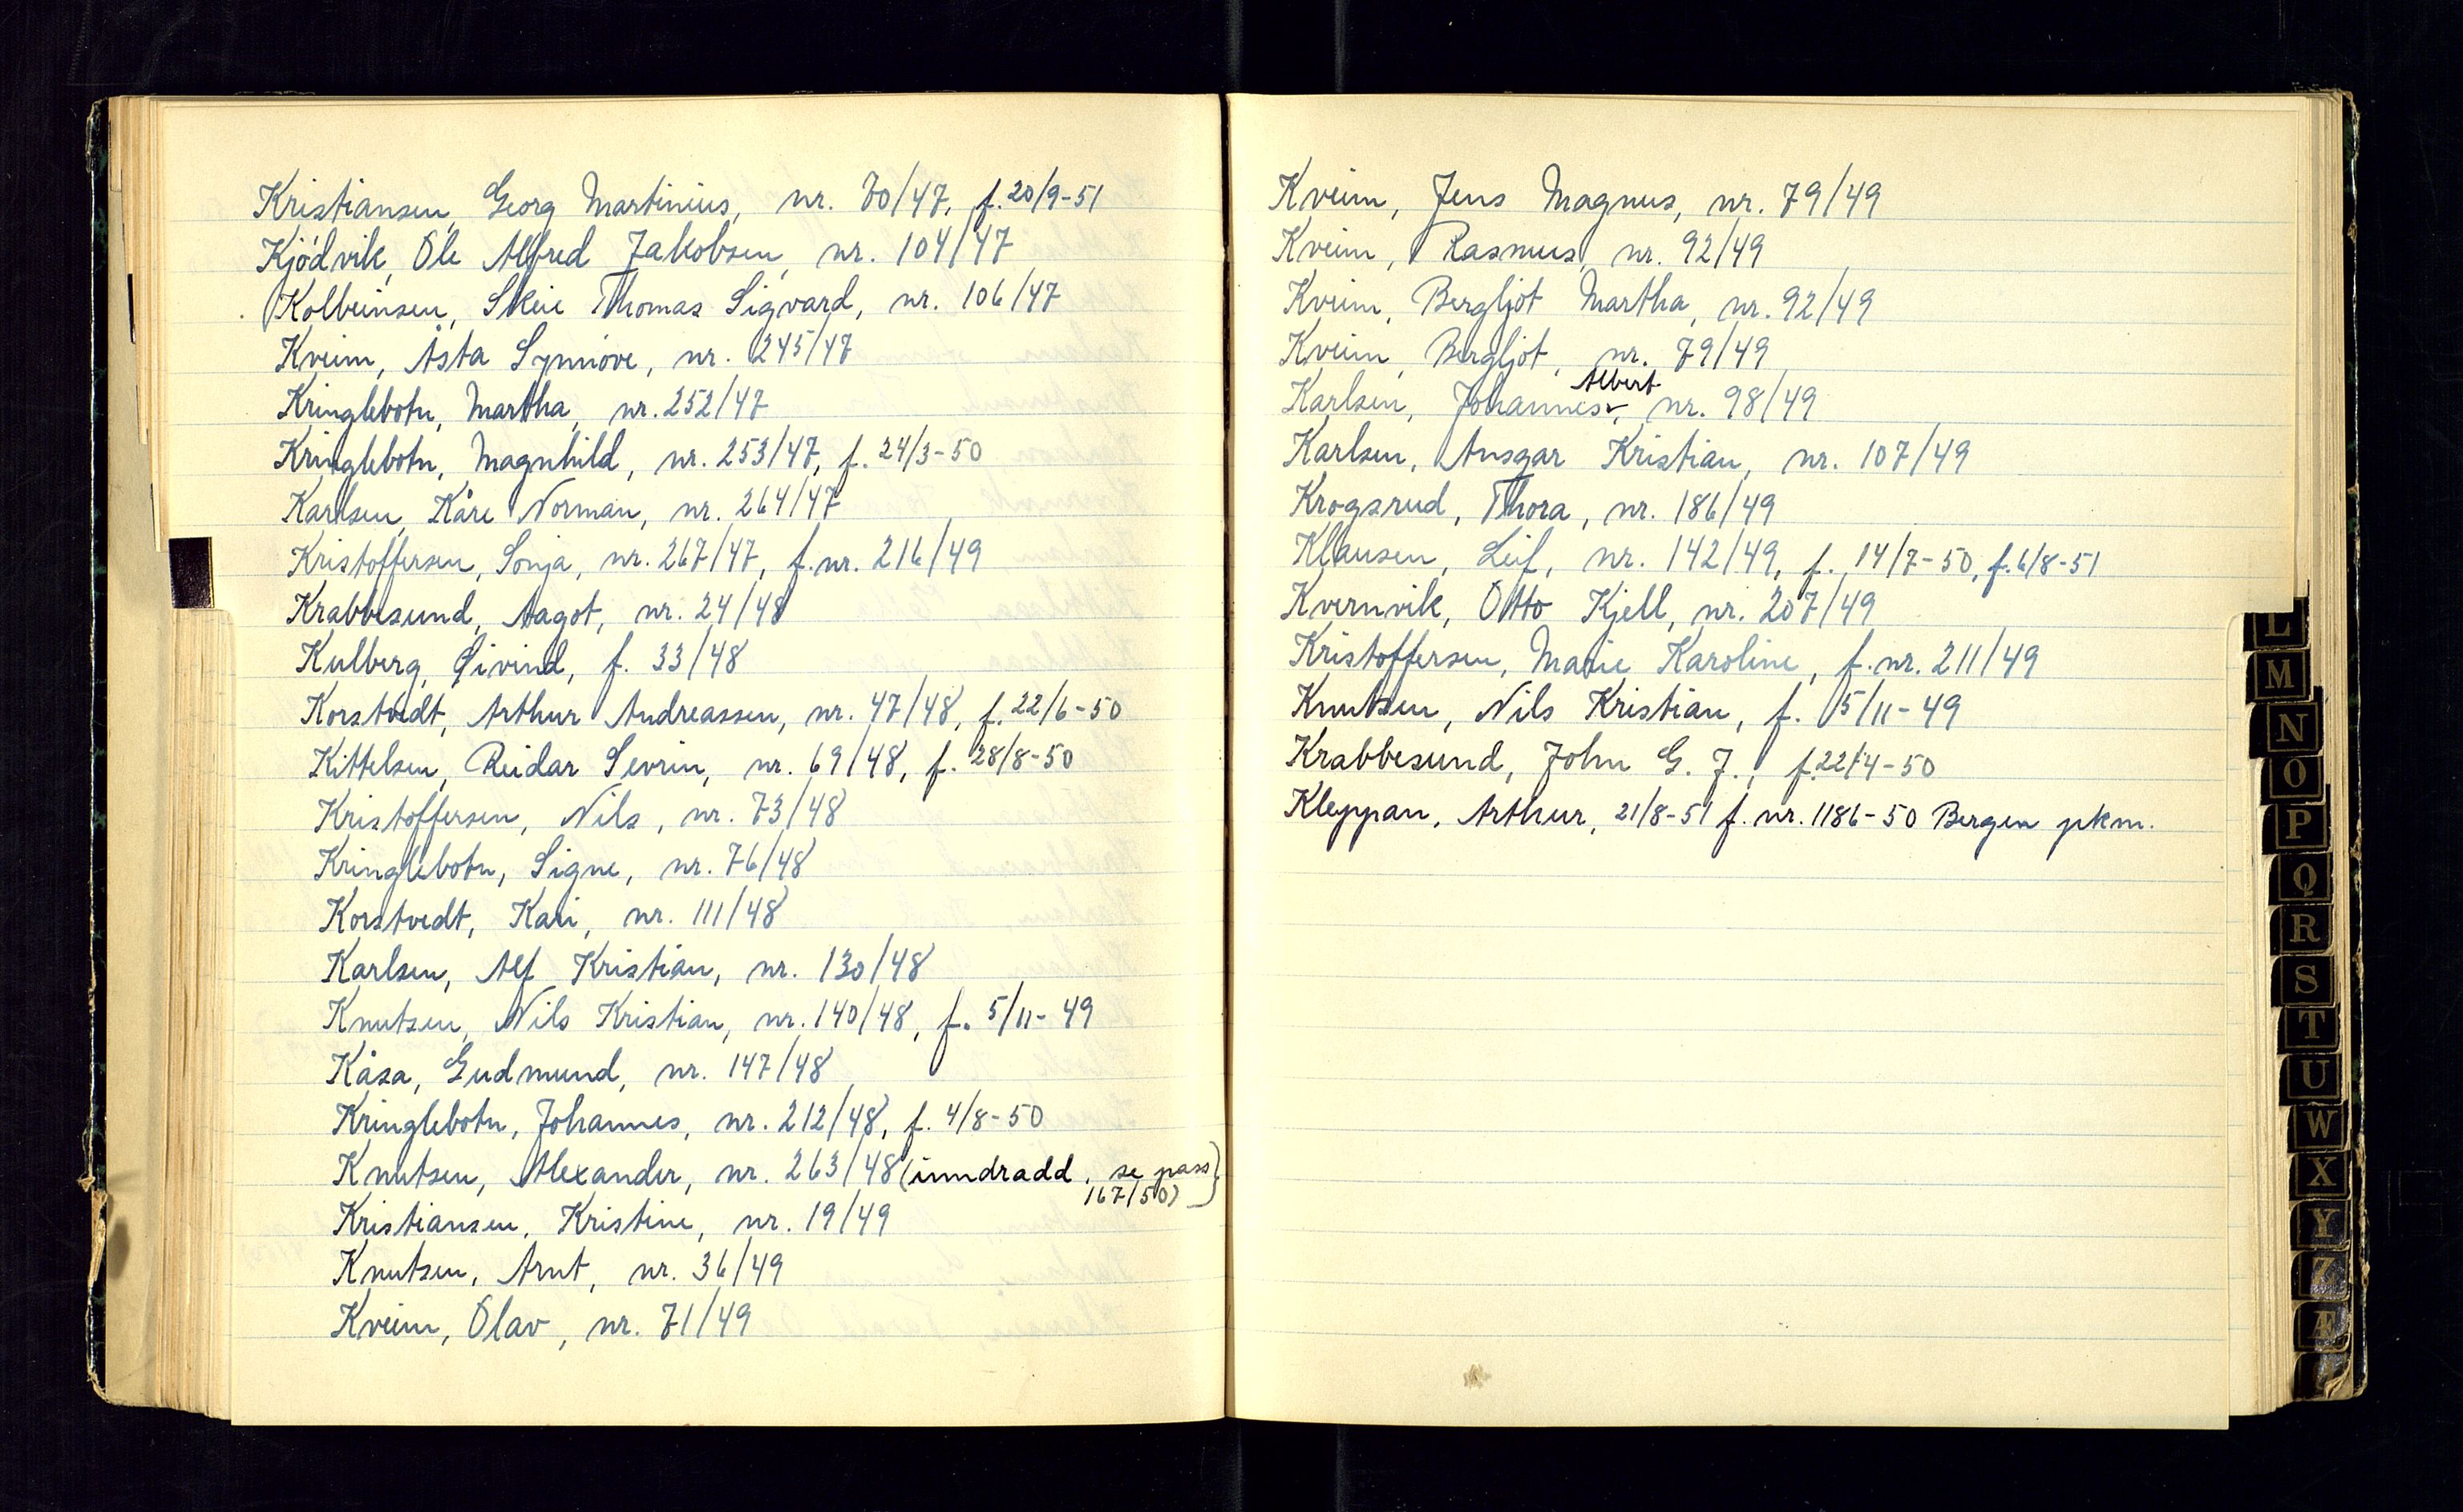 Kristiansen, Georg Martinius, nr. 70/47, f. 20/9-51
Kjödvik, Ole Alfred Jakobsen, nr. 104/47
Kolbeinsen, Skeie Thomas Sigvard, nr. 106/47
Kveim, Åsta Synnöve, nr. 245/47
Kringlebotn, Martha, nr. 252/47
Kringlebotn, Magnhild, nr. 253/47, f. 24/3-50
Karlsen, Kåre Norman, nr. 264/47
Kristoffersen, Sonja, nr. 267/47, f. nr. 216/49
Krabbesund, Aagot, nr. 24/48
Kulberg, Øivind, f. 33/48
Korstvedt, Arthur Andreassen, nr. 47/48, f. 22/6-50
Kittelsen, Reidar Sevrin, nr. 69/48, f. 28/8-50
Kristoffersen, Nils, nr. 73/48
Kringlebotn, Signe, nr. 76/48
Korstvedt, Kari, nr. 111/48
Karlsen, Alf Kristian, nr. 130/48
Knutsen, Nils Kristian, nr. 140/48, f. 5/11-49
Kåsa, Gudmund, nr. 147/48
Kringlebotn, Johannes, nr. 212/48, f. 4/8-50
Knutsen, Alexander, nr. 263/48 (inndradd, se pass
167/50)
Kristiansen, Kristine, nr. 19/49
Knutsen, Arnt, nr. 36/49
Kveim, Olav, nr. 71/49
Kveim, Jens Magnus, nr. 79/49
Kveim, Rasmus, nr. 92/49
Kveim, Bergljot Martha, nr. 92/49
Kveim, Bergljot, nr. 79/49
Albert
Karlsen, Johannes, nr. 98/49
Karlsen, Ansgar Kristian, nr. 107/49
Krogsrud, Thora, nr. 186/49
Klausen, Leif, nr. 142/49, f. 14/7-50, f. 6/8-51
Kvernvik, Otto Kjell, nr. 207/49
Kristoffersen, Marie Karoline, f. nr. 211/49
Knutsen, Nils Kristian, f. 5/11-49
Krabbesund, John G. J., f. 22/4-50
Kleppan, Arthur, 21/8-51 f. nr. 1186-50 Bergen pkm.
L
M
N
O
P
Q
R
S
T
U
W
X
Y
Z
Æ